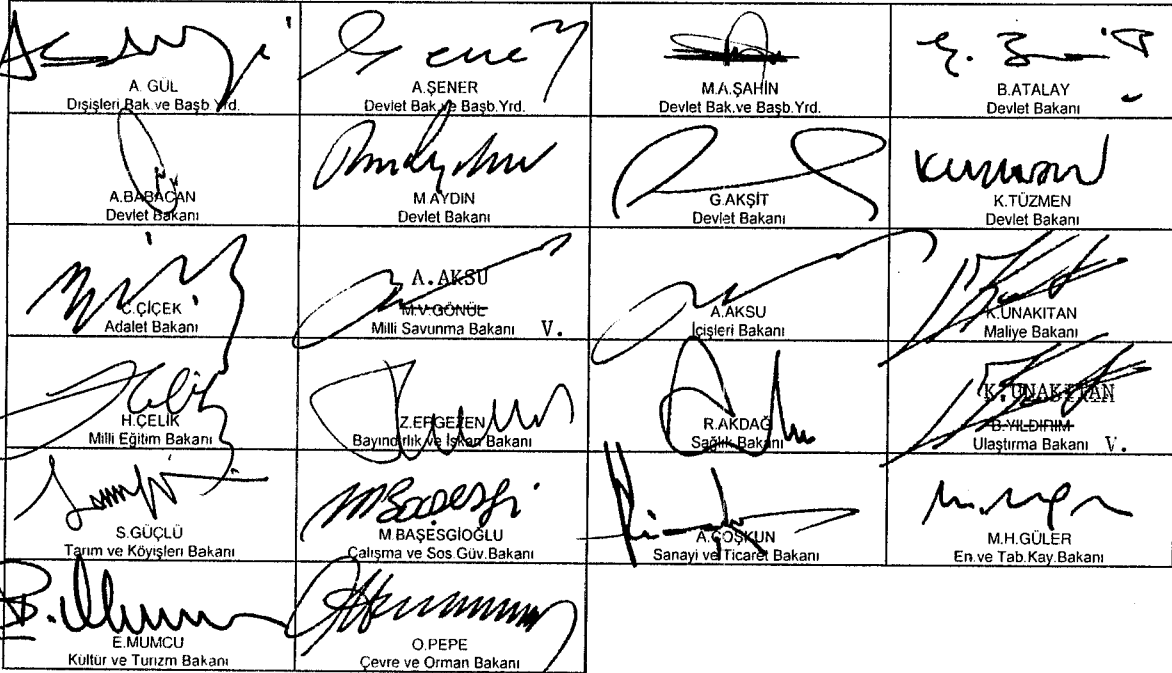 A. GÜL
Dışişleri Bak.ve Başb.Yrd.
A.ŞENER
Devlet Bak.ve Başb.Yrd.
M.A.ŞAHİN
Devlet Bak.ve Başb.Yrd.
B.ATALAY
Devlet Bakanı
A.BABACAN
Devlet Bakanı
M.AYDIN
Devlet Bakanı
G.AKŞİT
Devlet Bakanı
K.TÜZMEN
Devlet Bakanı
C.ÇİÇEK
Adalet Bakanı
A.AKSU
M.V.GÖNÜL
Milli Savunma Bakanı V.
A.AKSU
İçişleri Bakanı
K.UNAKITAN
Maliye Bakanı
H.ÇELİK
Milli Eğitim Bakanı
Z.ERGEZEN
Bayındırlık ve İskan Bakanı
R.AKDAĞ
Sağlık Bakanı
K.UNAKITAN
B.YILDIRIM
Ulaştırma Bakanı V.
S.GÜÇLÜ
Tarım ve Köyişleri Bakanı
M.BAŞESGİOĞLU
Çalışma ve Sos.Güv.Bakanı
A.COŞKUN
Sanayi ve Ticaret Bakanı
M.H.GÜLER
En.ve Tab.Kay.Bakanı
E.MUMCU
Kültür ve Turizm Bakanı
O.PEPE
Çevre ve Orman Bakanı